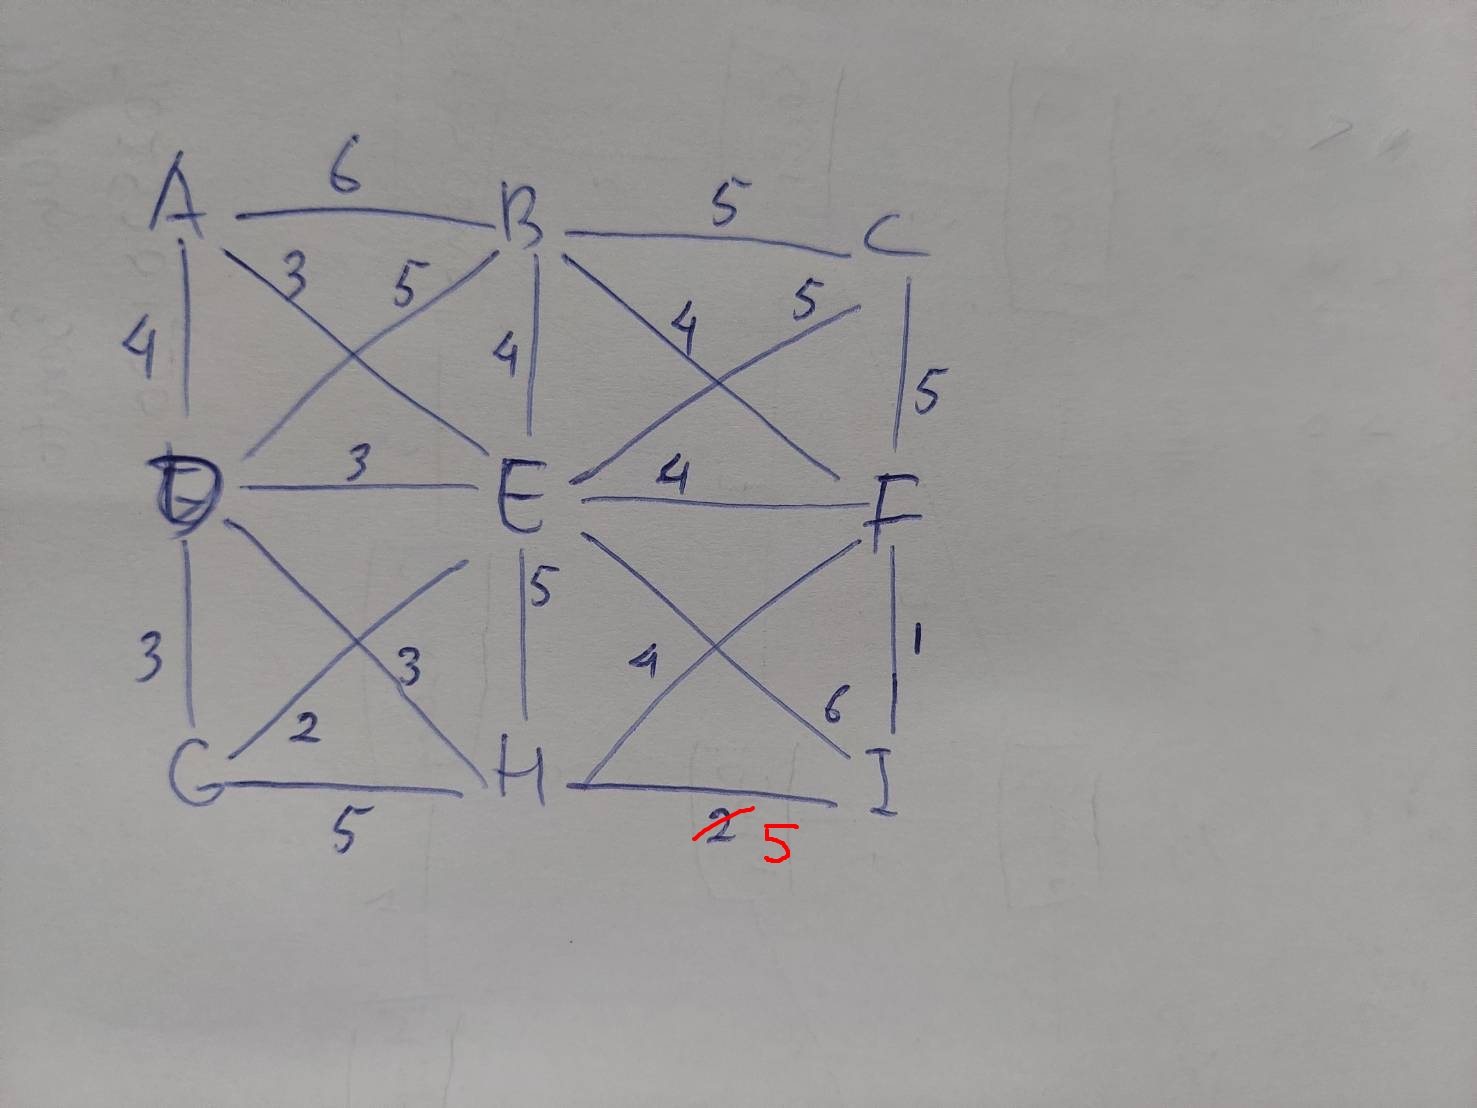 A 6 B 5 C
3 5 5
4 4 4 5
D 3 E 4 F
5
3 3 4 1
2 6
G H I
5 2 5